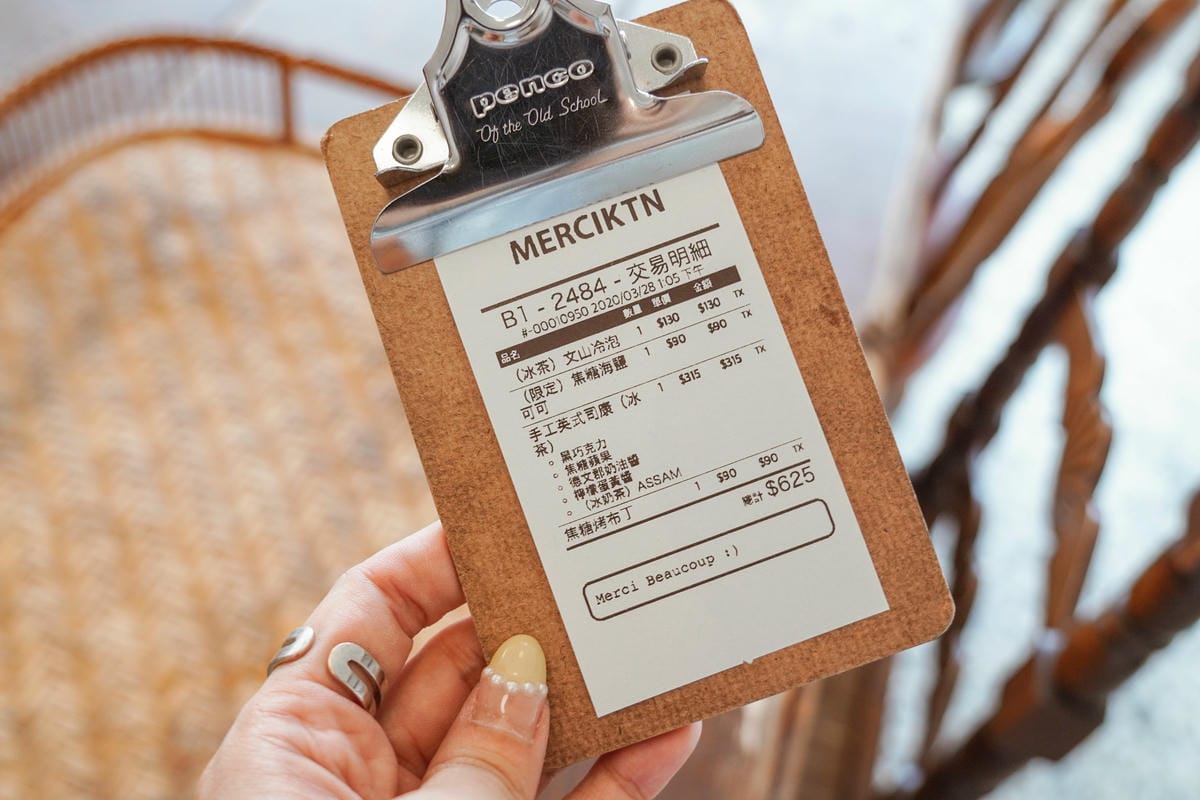 penco
Of the Old School
MERCIKTN
B1 - 2484 - 交易明細
#-00010950 2020/03/28 1:05 下午
品名 數量 單價 金額
（冰茶）文山冷泡 1 $130 $130 TX
（限定）焦糖海鹽 1 $90 $90 TX
可可
手工英式司康（冰 1 $315 $315 TX
茶）
。黑巧克力
。焦糖蘋果
。德文郡奶油醬
。檸檬蛋黃醬
。（冰奶茶）ASSAM
焦糖烤布丁 1 $90 $90 TX
總計 $625
Merci Beaucoup :)